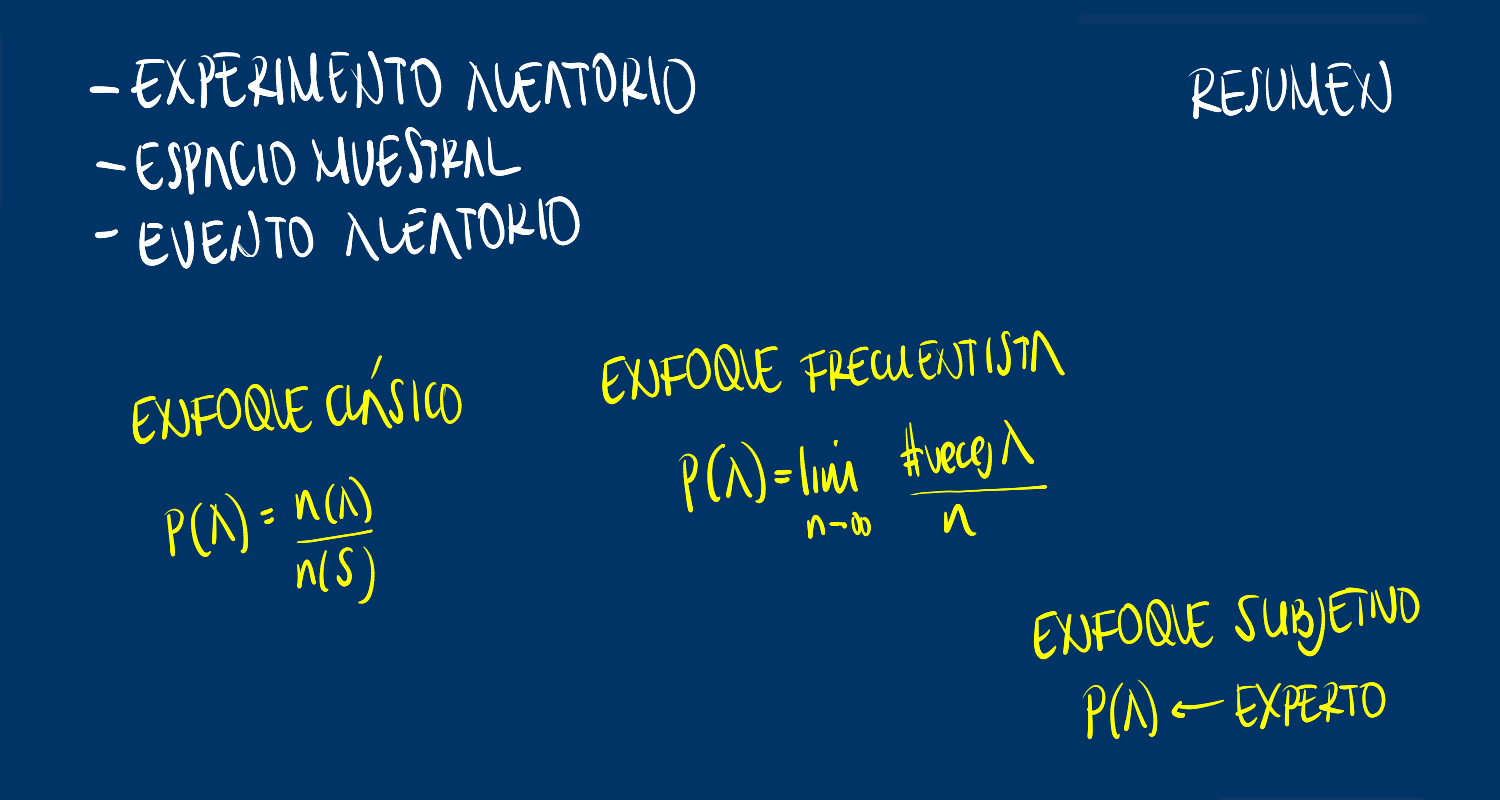 - EXPERIMENTO ALEATORIO
RESUMEN
- ESPACIO MUESTRAL
- EVENTO ALEATORIO
ENFOQUE CLÁSICO
P(A) = n(A) / n(S)
ENFOQUE FRECUENTISTA
P(A) = lim n→∞ #veces A / n
ENFOQUE SUBJETIVO
P(A) ← EXPERTO